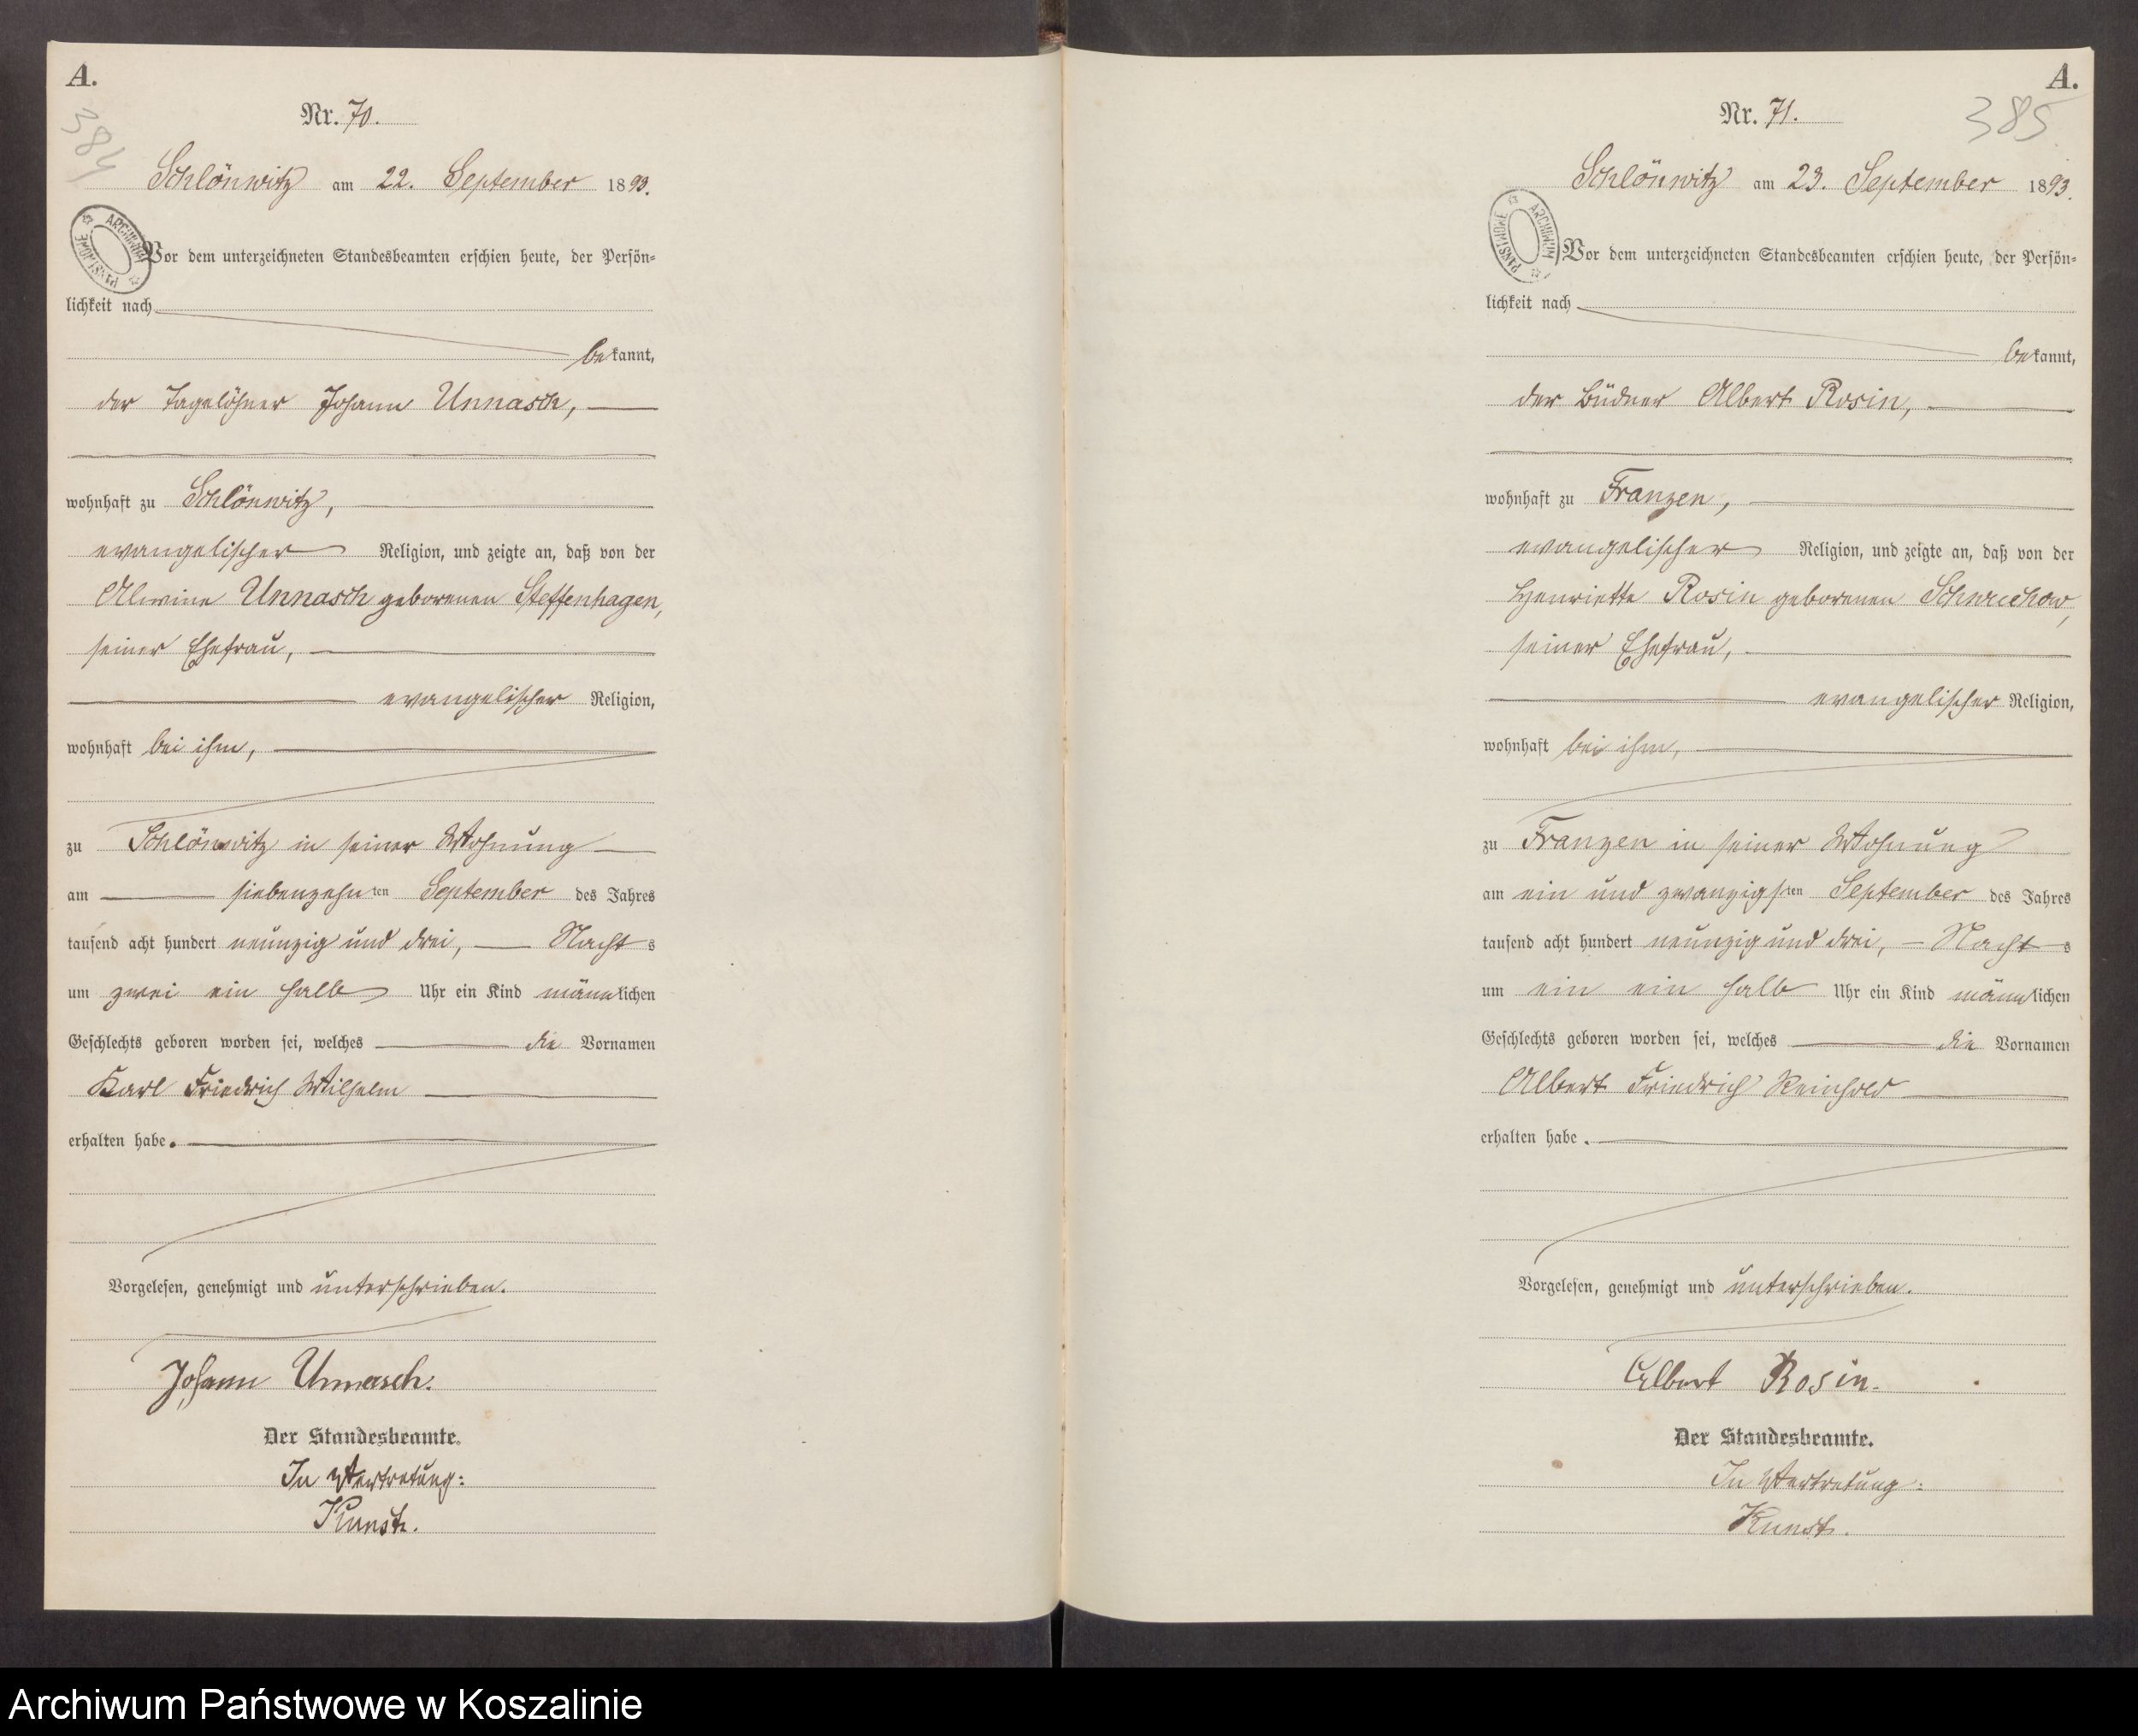 A.
384
Nr. 70.
Schlönwitz am 22. September 1893.
ARCHIWUM PAŃSTWOWE
Vor dem unterzeichneten Standesbeamten erschien heute, der Persön-
lichkeit nach
bekannt,
der Tagelöhner Johann Unnasch,
wohnhaft zu Schlönwitz,
evangelischer Religion, und zeigte an, daß von der
Alwine Unnasch geborenen Steffenhagen,
seiner Ehefrau,
evangelischer Religion,
wohnhaft bei ihm,
zu Schlönwitz in seiner Wohnung
am siebenzehnten September des Jahres
tausend acht hundert neunzig und drei, Nachts
um zwei ein halb Uhr ein Kind männlichen
Geschlechts geboren worden sei, welches die Vornamen
Karl Friedrich Wilhelm
erhalten habe.
Vorgelesen, genehmigt und unterschrieben.
Johann Unnasch.
Der Standesbeamte.
In Vertretung:
Kunst.
A.
385
Nr. 71.
Schlönwitz am 23. September 1893.
ARCHIWUM PAŃSTWOWE
Vor dem unterzeichneten Standesbeamten erschien heute, der Persön-
lichkeit nach
bekannt,
der Büdner Albert Rosin,
wohnhaft zu Franzen,
evangelischer Religion, und zeigte an, daß von der
Henriette Rosin geborenen
seiner Ehefrau,
evangelischer Religion,
wohnhaft bei ihm,
zu Franzen in seiner Wohnung
am ein und zwanzigsten September des Jahres
tausend acht hundert neunzig und drei, Nachts
um ein ein halb Uhr ein Kind männlichen
Geschlechts geboren worden sei, welches die Vornamen
Albert Friedrich Reinhold
erhalten habe.
Vorgelesen, genehmigt und unterschrieben.
Albert Rosin.
Der Standesbeamte.
In Vertretung:
Kunst.
Archiwum Państwowe w Koszalinie